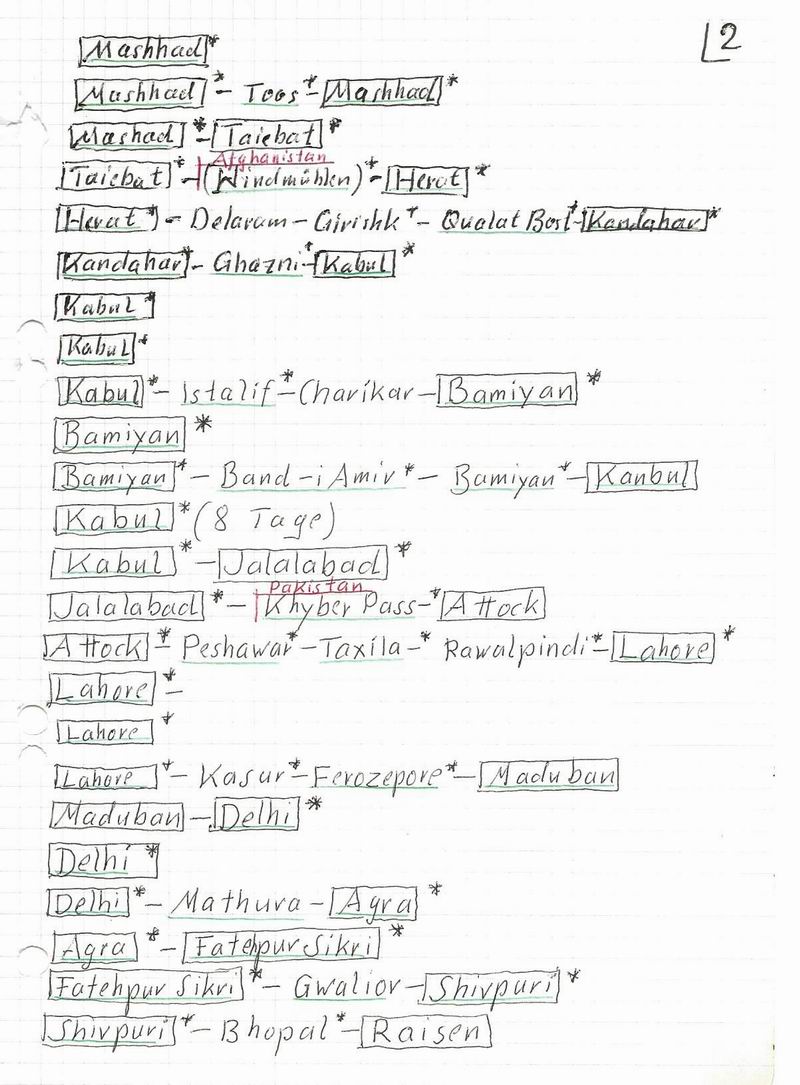 2
Mashhad*
Mashhad* - Toos* - Mashhad*
Mashad* - Taiebat*
Afghanistan
Taiebat* - (Windmühlen)* - Herat*
Herat*) - Delaram - Girishk* - Qualat Bost* - Kandahar*
Kandahar* - Ghazni* - Kabul*
Kabul*
Kabul*
Kabul* - Istalif* - Charikar - Bamiyan*
Bamiyan*
Bamiyan* - Band-i Amir* - Bamiyan* - Kanbul
Kabul* (8 Tage)
Kabul* - Jalalabad*
Pakistan
Jalalabad* - Khyber Pass-* Attock
Attock* - Peshawar* - Taxila-* Rawalpindi* - Lahore*
Lahore* -
Lahore*
Lahore* - Kasur* - Ferozepore* - Maduban
Maduban - Delhi*
Delhi*
Delhi* - Mathura - Agra*
Agra* - Fatehpur Sikri*
Fatehpur Sikri* - Gwalior - Shivpuri*
Shivpuri* - Bhopal* - Raisen